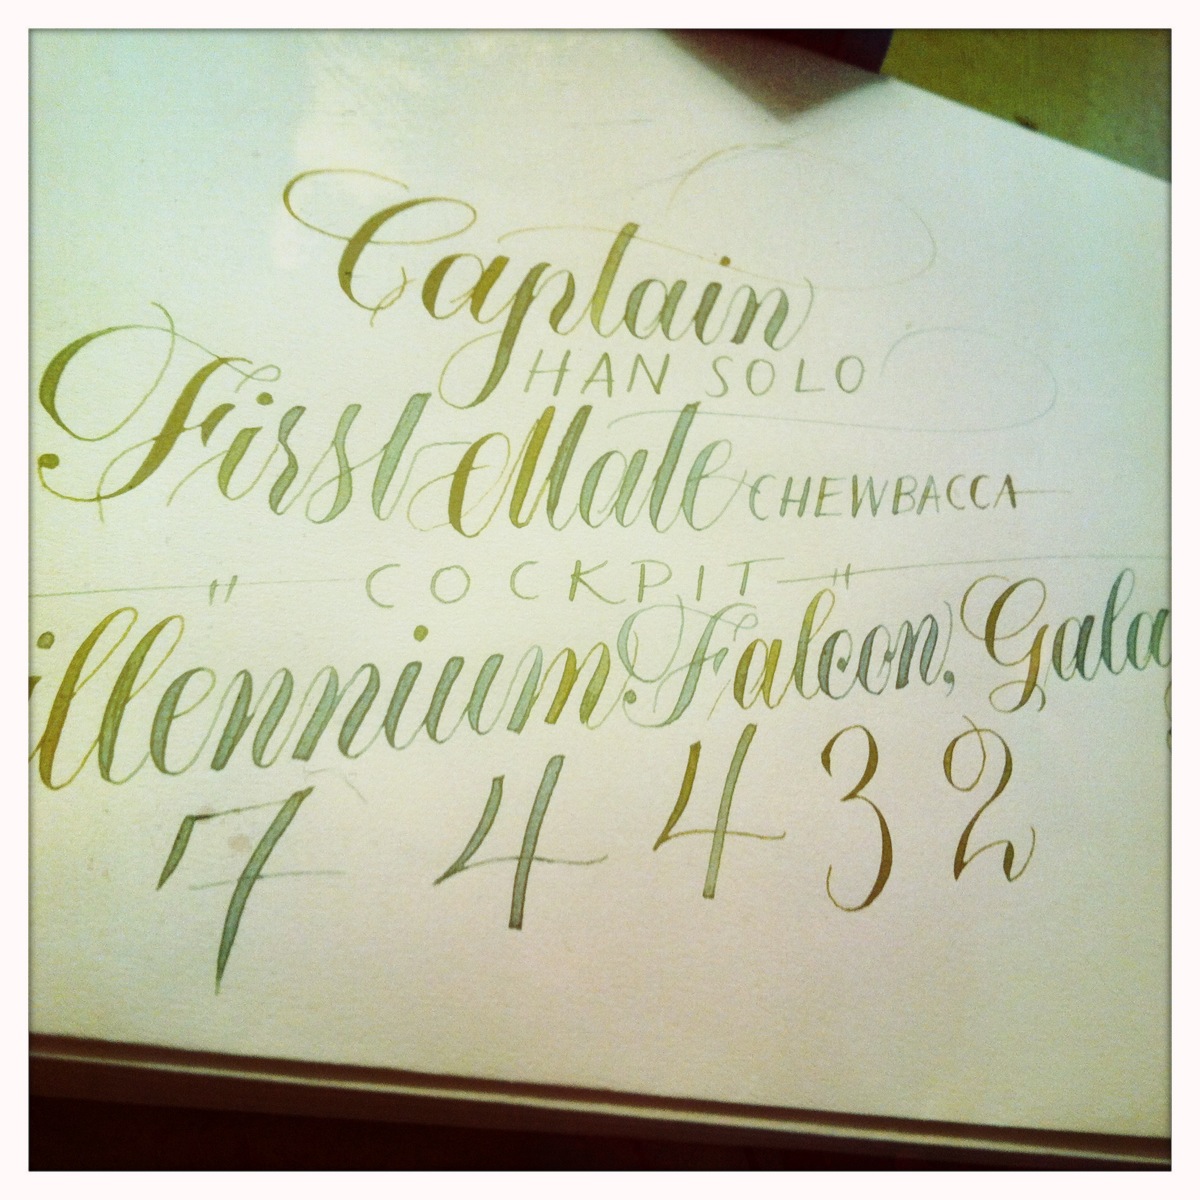 Captain
HAN SOLO
First Mate CHEWBACCA
COCKPIT
illennium Falcon, Gala
7 4 4 3 2